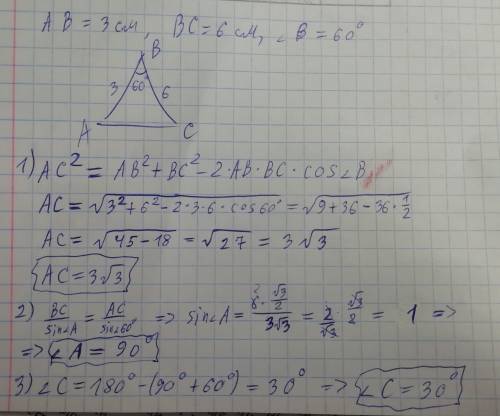 AB = 3 см, BC = 6 см, ∠B = 60°
B
3 60° 6
A C
1) AC² = AB² + BC² - 2·AB·BC·cos∠B
AC = √(3² + 6² - 2·3·6·cos60°) = √(9 + 36 - 36·1/2)
AC = √(45 - 18) = √27 = 3√3
AC = 3√3
2) BC/sin∠A = AC/sin60° => sin∠A = (6·√3/2)/(3√3) = 2/√3 · √3/2 = 1 =>
=> ∠A = 90°
3) ∠C = 180° - (90° + 60°) = 30° => ∠C = 30°